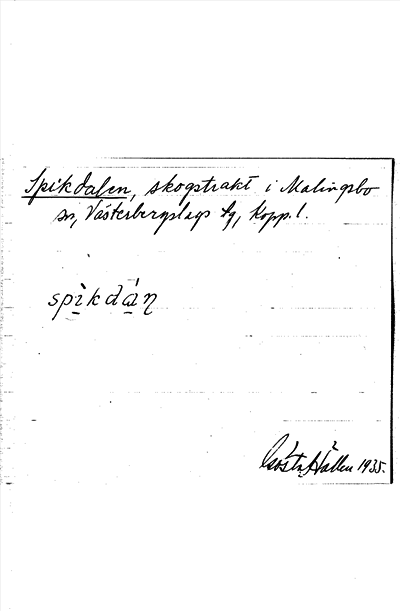 Spikdalen, skogstrakt i Malingsbo
sn, Västerbergslags tg, Kopp. l.
spì̱kdá̱ƞ
Gösta Hallen 1935.